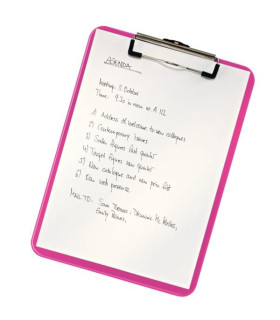 AGENDA
Meeting: 8. October
Time: 9.30 in room nr. A 112
1) Address of welcome to new colleagues
2) Contemporary issues
3) Sales figures last quarter
4) Target figures new quarter
5) New catalogue and new price list
6) New web presence
MAIL TO: Sam Thomas, Dominic
Emily Brown,